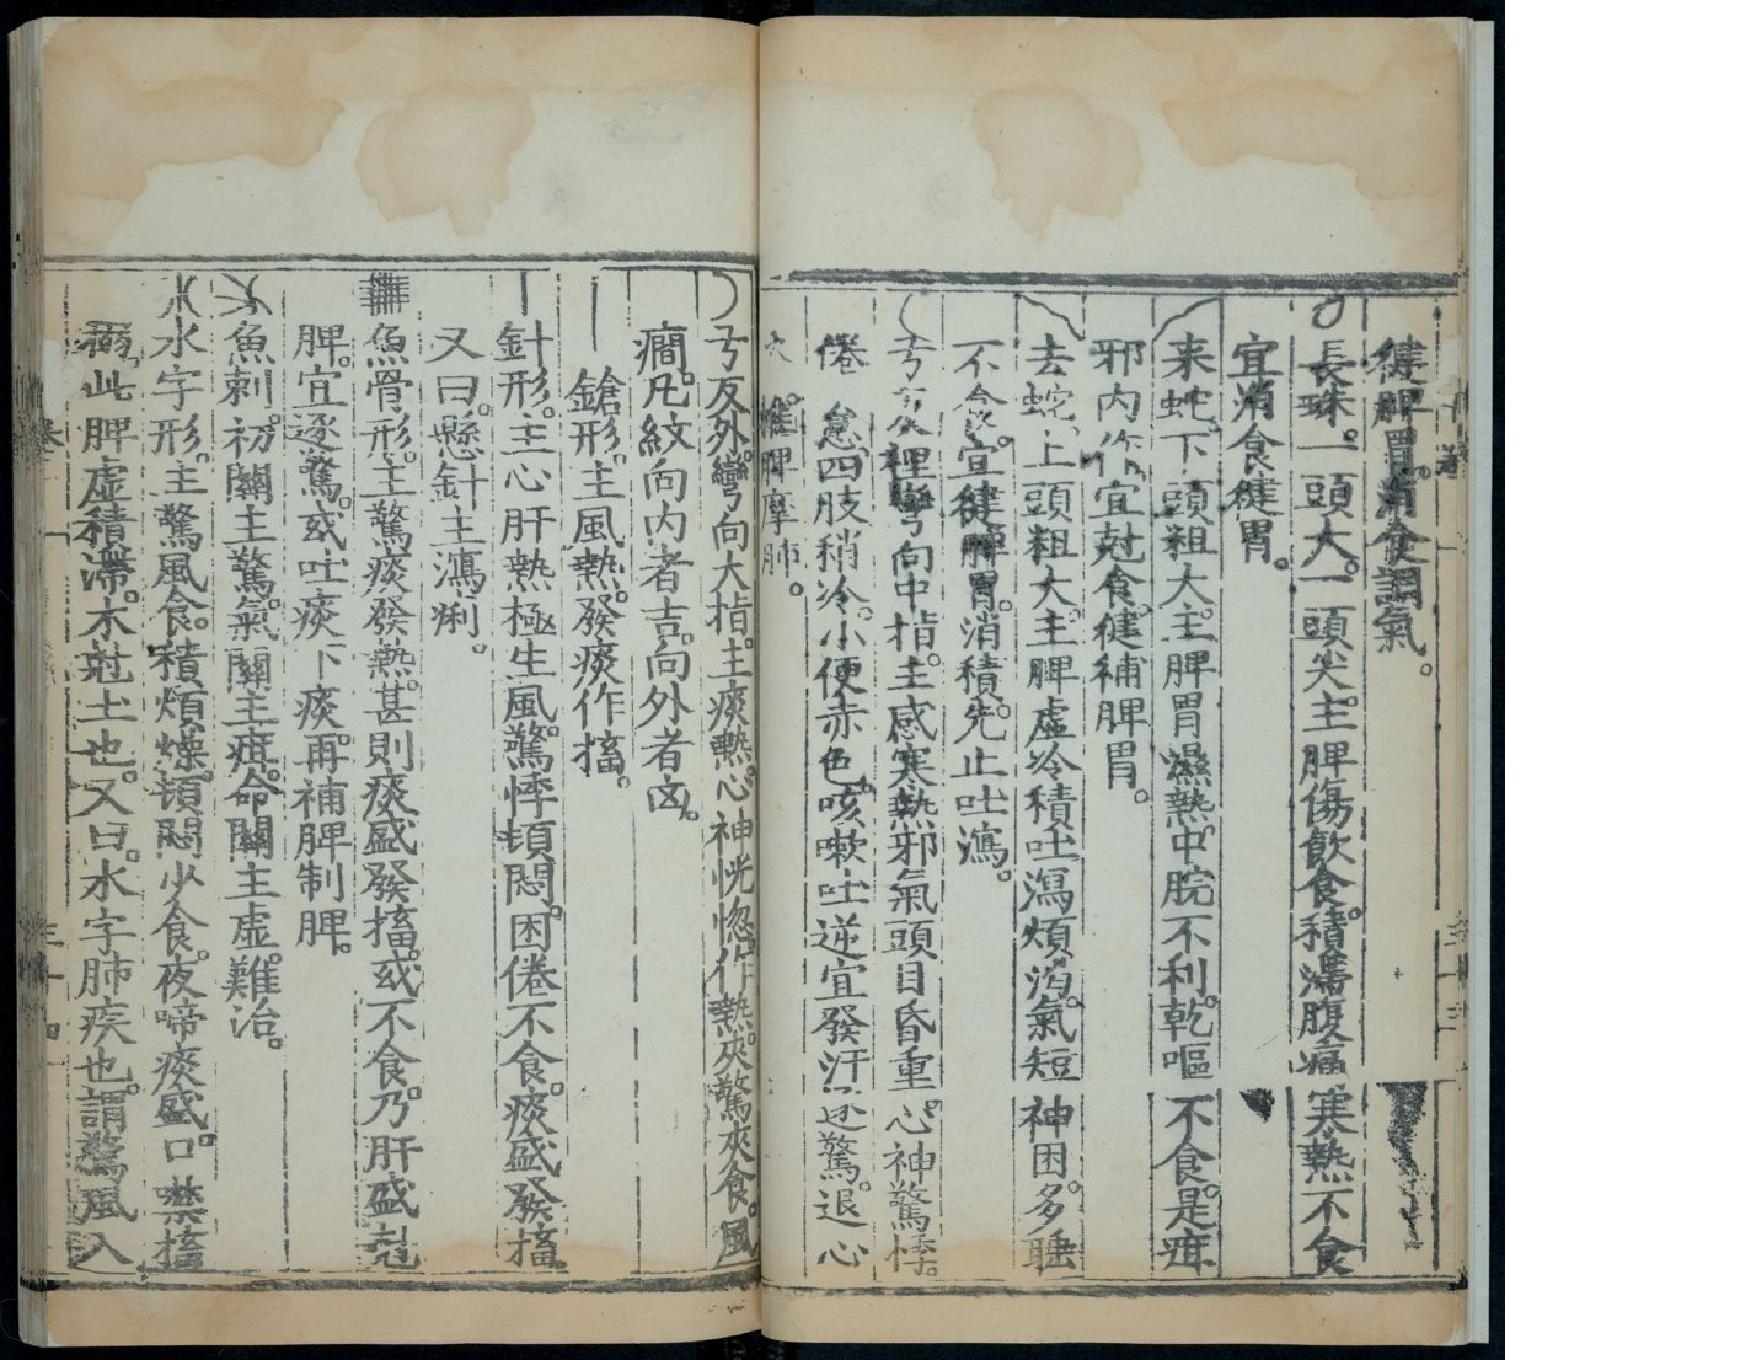 健脾胃。消食調氣。
長珠。一頭大。一頭尖。主脾傷飲食。積滯腹痛寒熱不食
宜消食健胃。
来蛇。下頭粗大。主脾胃濕熱。中脘不利。乾嘔不食。是疳
邪内作。宜尅食。健補脾胃。
去蛇。上頭粗大。主脾虛冷積。吐瀉煩渴。氣短神困。多睡
不食。宜健脾胃。消積。先止吐瀉。
弓反裡彎向中指。主感寒熱邪氣。頭目昏重。心神驚悸。
倦怠。四肢稍冷。小便赤色。咳嗽吐逆。宜發汗逐驚。退心
火。推脾摩肺。
弓反外彎向大指。主痰熱。心神恍惚作熱。夾驚夾食。風
癎。凡紋向内者吉。向外者凶。
鎗形。主風熱。發痰作搐。
針形。主心肝熱極生風。驚悸頓悶。困倦不食。痰盛發搐。
又曰。懸針主瀉痢。
魚骨形。主驚痰發熱。甚則痰盛發搐。或不食。乃肝盛尅
脾。宜逐驚。或吐痰下痰。再補脾制脾。
魚刺。初關主驚。氣關主疳。命關主虛。難治。
水字形。主驚風食。積煩燥。頓悶少食。夜啼。痰盛。口噤搐
搦。此脾虛積滯。木尅土也。又曰。水字肺疾也。謂驚風入